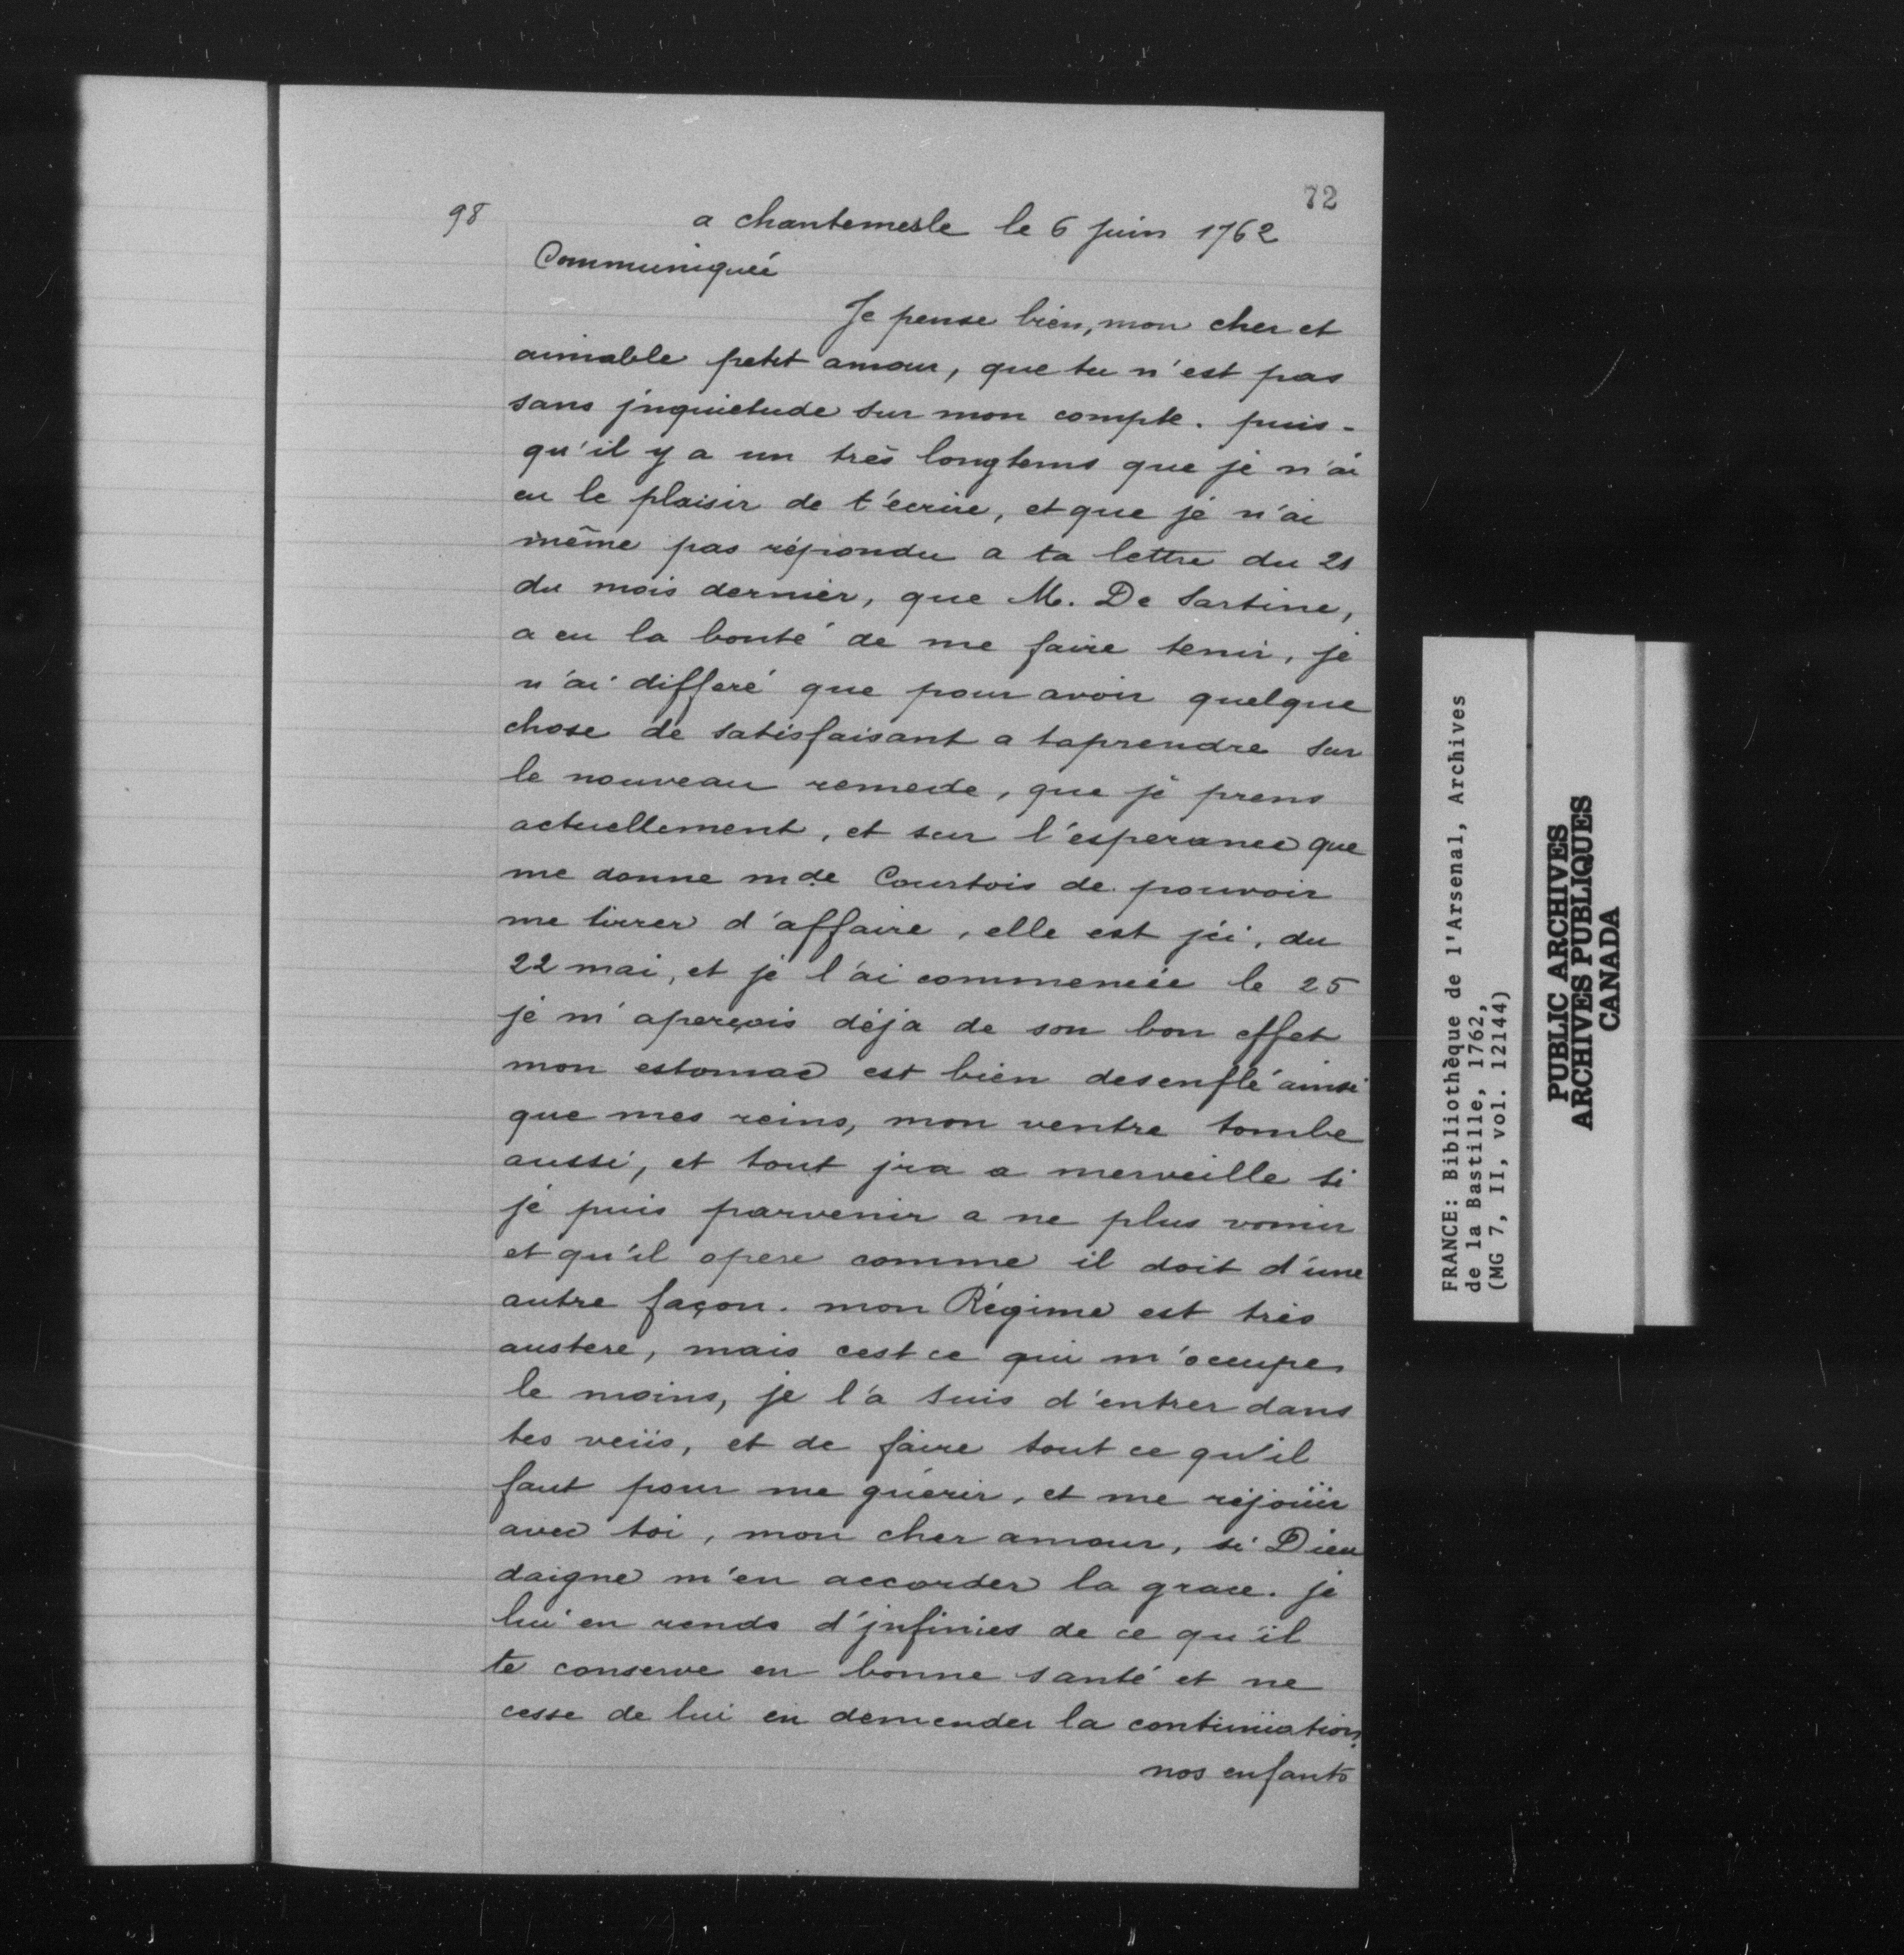 72
98
a chantemesle le 6 juin 1762
Communiquée
Je pense bien, mon cher et
aimable petit amour, que tu n'est pas
sans jnquietude sur mon compte. puis-
qu'il y a un très longtems que je n'ai
eu le plaisir de t'écrire, et que je n'ai
même pas répondu a ta lettre du 21
du mois dernier, que M. De Sartine,
a eu la bonté de me faire tenir, je
n'ai differé que pour avoir quelque
chose de satisfaisant a taprendre sur
le nouveau remede, que je prens
actuellement, et sur l'esperance que
me donne mde Courtois de pouvoir
me tirrer d'affaire, elle est jci, du
22 mai, et je l'ai commencée le 25
je m'aperçois déja de son bon effet
mon estomac est bien desenflé ainsi
que mes reins, mon ventre tombe
aussi, et tout jra a merveille si
je puis parvenir a ne plus vomir
et qu'il opere comme il doit d'une
autre façon. mon Régime est très
austere, mais cest ce qui m'occupe
le moins, je l'a suis d'entrer dans
tes veüs, et de faire tout ce qu'il
faut pour me guérir, et me réjoüir
avec toi, mon cher amour, si Dieu
daigne m'en accorder la grace. je
lui en rends d'jnfinies de ce qu'il
te conserve en bonne santé et ne
cesse de lui en demender la continüation.
nos enfants
FRANCE: Bibliothèque de l'Arsenal, Archives
de la Bastille, 1762,
(MG 7, II, vol. 12144)
PUBLIC ARCHIVES
ARCHIVES PUBLIQUES
CANADA